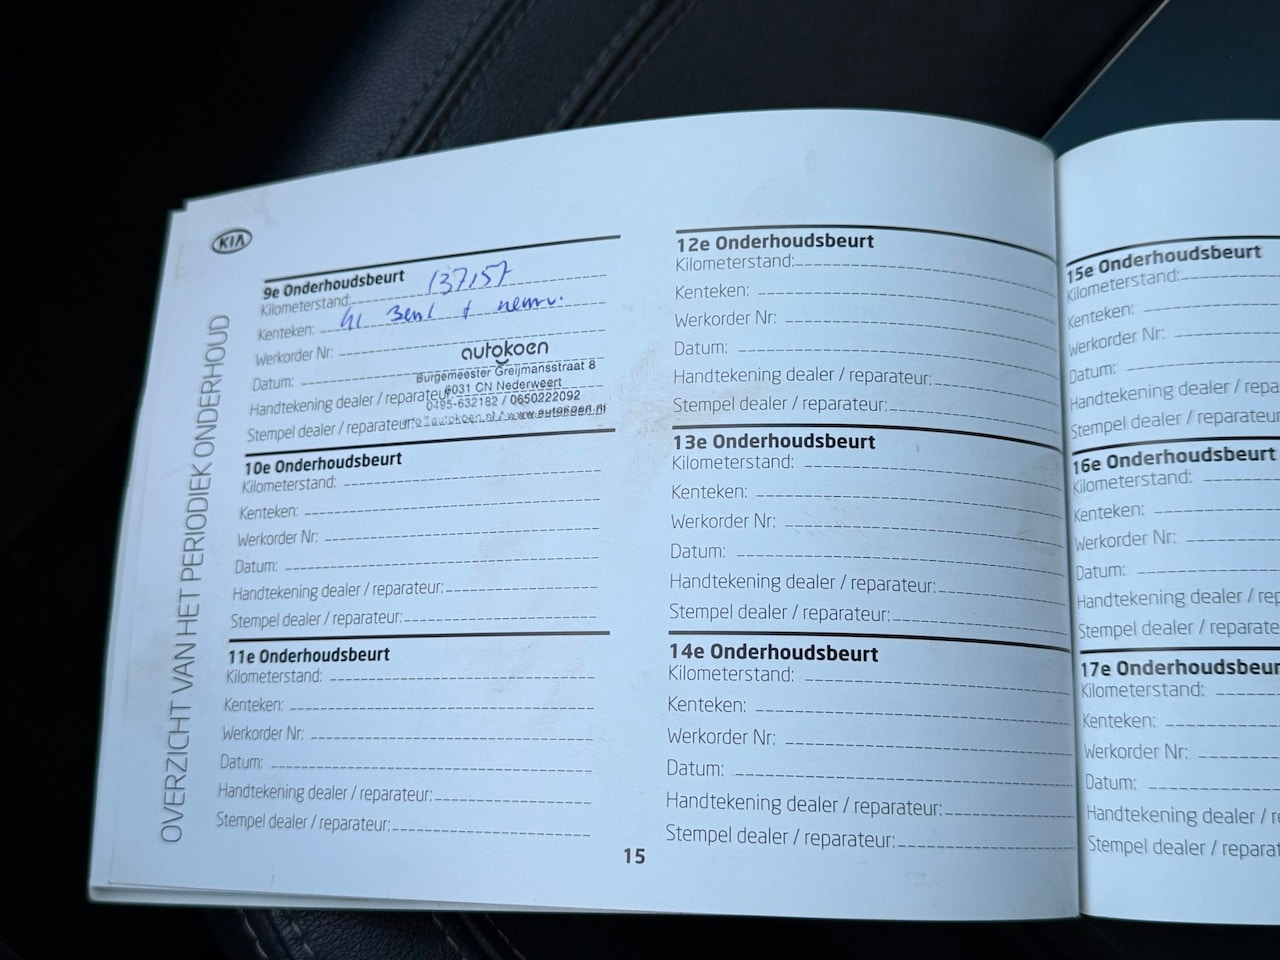 KIA
OVERZICHT VAN HET PERIODIEK ONDERHOUD
9e Onderhoudsbeurt
Kilometerstand: 137157
Kenteken:
Werkorder Nr:
Datum:
Handtekening dealer / reparateur:
Stempel dealer / reparateur:
autokoen
Burgemeester Greijmansstraat 8
6031 CN Nederweert
0495-632182 / 0650222092
autokoen.nl / www.autokoen.nl
10e Onderhoudsbeurt
Kilometerstand:
Kenteken:
Werkorder Nr:
Datum:
Handtekening dealer / reparateur:
Stempel dealer / reparateur:
11e Onderhoudsbeurt
Kilometerstand:
Kenteken:
Werkorder Nr:
Datum:
Handtekening dealer / reparateur:
Stempel dealer / reparateur:
12e Onderhoudsbeurt
Kilometerstand:
Kenteken:
Werkorder Nr:
Datum:
Handtekening dealer / reparateur:
Stempel dealer / reparateur:
13e Onderhoudsbeurt
Kilometerstand:
Kenteken:
Werkorder Nr:
Datum:
Handtekening dealer / reparateur:
Stempel dealer / reparateur:
14e Onderhoudsbeurt
Kilometerstand:
Kenteken:
Werkorder Nr:
Datum:
Handtekening dealer / reparateur:
Stempel dealer / reparateur:
15
15e Onderhoudsbeurt
Kilometerstand:
Kenteken:
Werkorder Nr:
Datum:
Handtekening dealer / repa
Stempel dealer / reparateur
16e Onderhoudsbeurt
Kilometerstand:
Kenteken:
Werkorder Nr:
Datum:
Handtekening dealer / rep
Stempel dealer / reparate
17e Onderhoudsbeur
Kilometerstand:
Kenteken:
Werkorder Nr:
Datum:
Handtekening dealer / re
Stempel dealer / reparat